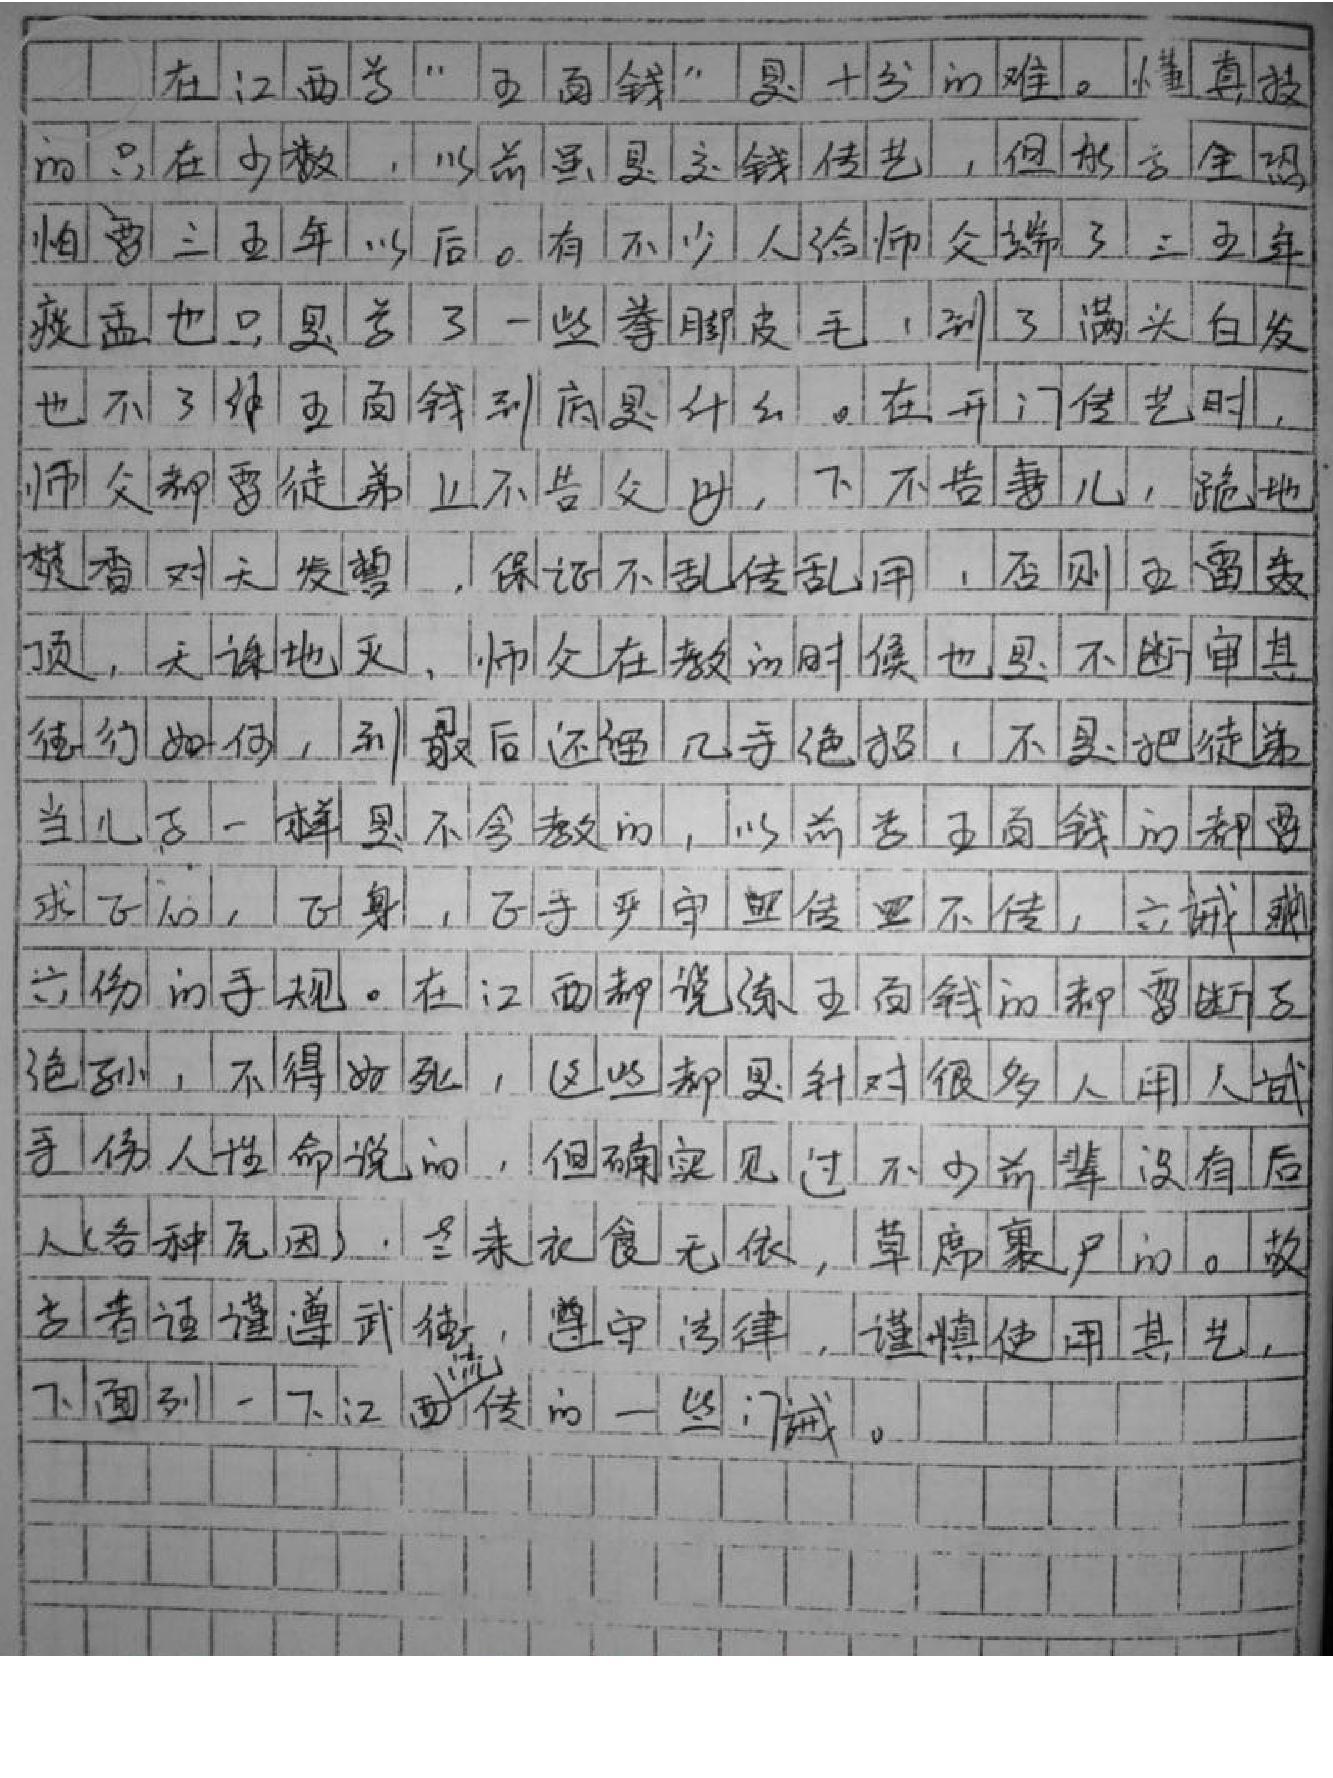 在江西学“五百钱”是十分的难。懂真技
的只在少数，以前虽是交钱传艺，但欲学全恐
怕要三五年以后。有不少人给师父端了三五年
痰盂也只是学了一些拳脚皮毛，到了满头白发
也不了解五百钱到底是什么。在开门传艺时，
师父都要徒弟上不告父母，下不告妻儿，跪地
焚香对天发誓，保证不乱传乱用，否则五雷轰
顶，天诛地灭、师父在教的时候也是不断审其
德行如何，到最后还留几手绝招，不是把徒弟
当儿子一样是不会教的，以前学五百钱的都要
求正心，正身，正手严守四传四不传，六诫
六伤的手规。在江西都说练五百钱的都要断子
绝孙，不得好死，这些都是针对很多人用人试
手伤人性命说的，但确实见过不少前辈没有后
人（各种原因）．老来衣食无依，草席裹尸的。故
学者证谨遵武德，遵守法律，谨慎使用其艺，
下面列一下江西流传的一些门诫。